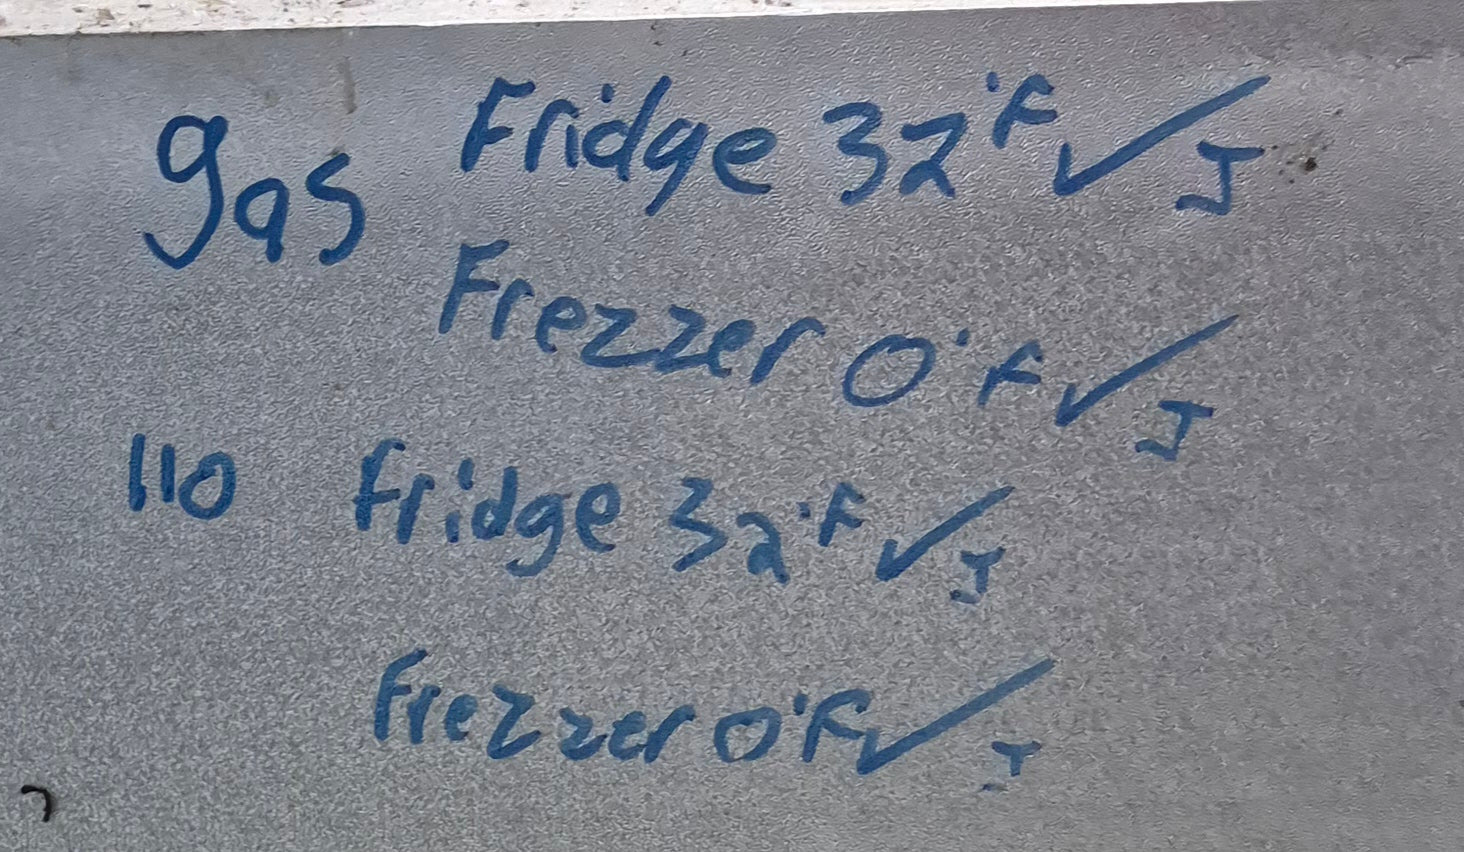 gas Fridge 32°F ✓ J
Frezzer 0°F ✓ J
110 Fridge 32°F ✓ J
Frezzer 0°F ✓ J